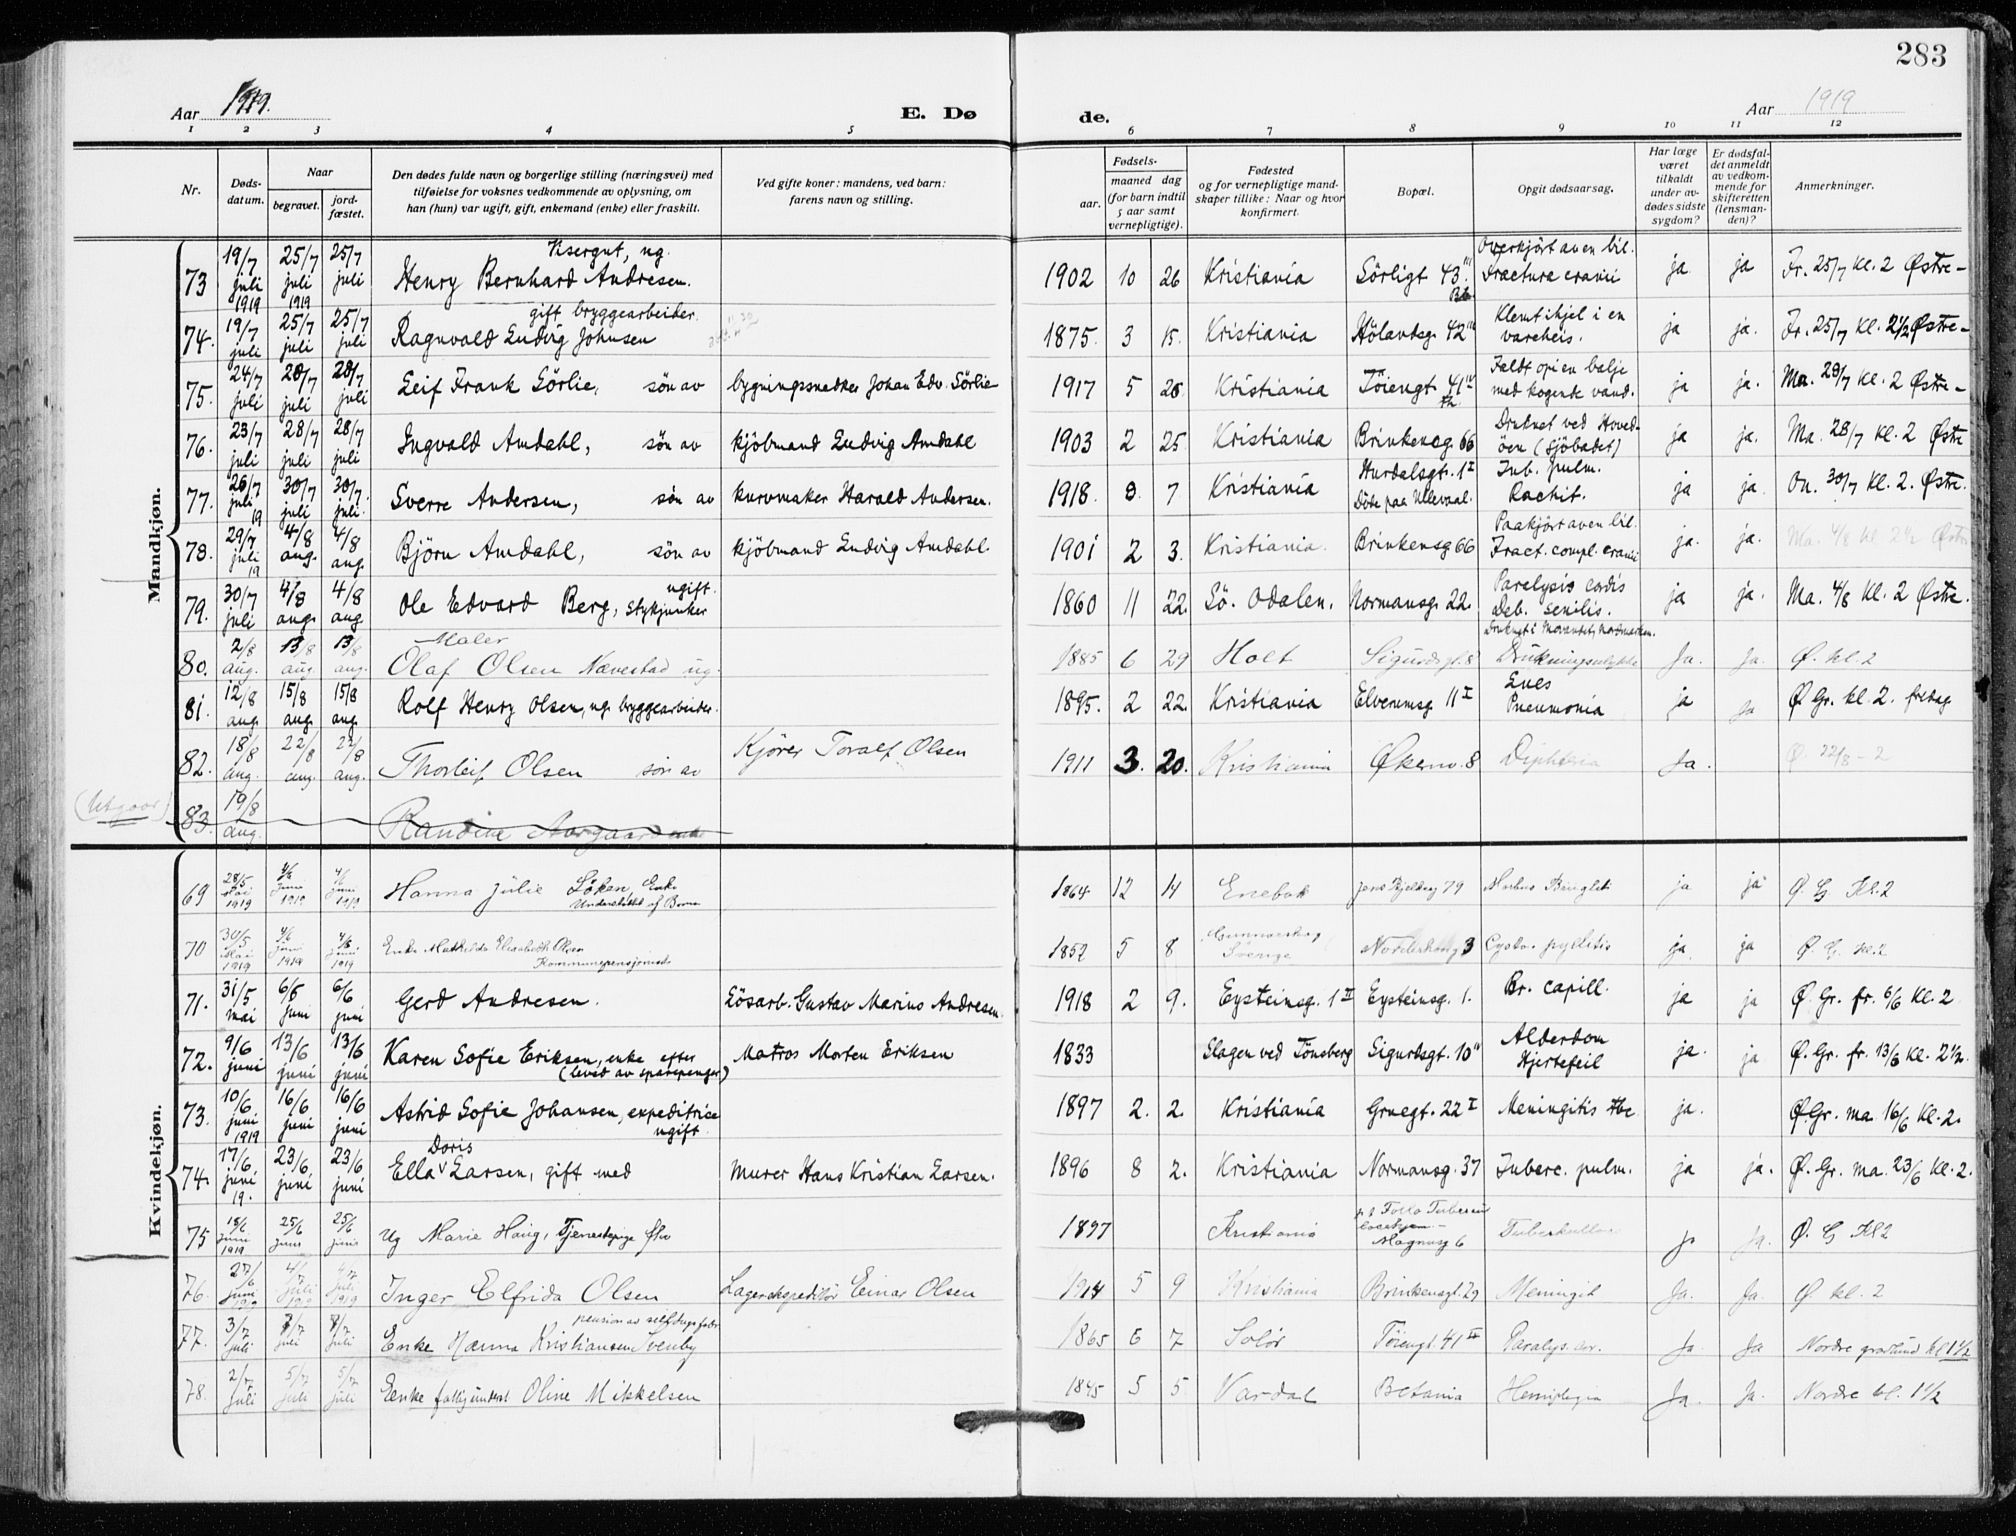 283
Aar 1919.
E. Dø de.
Aar 1919
1 2 3 4 5 6 7 8 9 10 11 12
Nr.
Døds-datum.
Naar
begravet. jord-fæstet.
Den dødes fulde navn og borgerlige stilling (næringsvei) med
tilføielse for voksnes vedkommende av oplysning, om
han (hun) var ugift, gift, enkemand (enke) eller fraskilt.
Ved gifte koner: mandens, ved barn:
farens navn og stilling.
Fødsels-
aar. maaned dag
(for barn indtil
5 aar samt
vernepligtige).
Fødested
og for vernepligtige mand-
skaper tillike: Naar og hvor
konfirmert.
Bopæl.
Opgit dødsaarsag.
Har læge
været
tilkaldt
under av-
dødes sidste
sygdom?
Er dødsfal-
det anmeldt
av vedkom-
mende for
skifteretten
(lensman-
den)?
Anmerkninger.
Mandkjøn.
73 19/7 juli 1919 25/7 juli 1919 25/7 juli Visergut, ug. Henry Bernhard Andresen. 1902 10 26 Kristiania Sörligt 43 Overkjört av en bil. Fractura cranii ja ja Fr. 25/7 kl. 2 Østre-
74. 19/7 juli 25/7 juli 25/7 juli gift bryggearbeider. Ragnvald Ludvig Johnsen 1875. 3 15. Kristiania Hölandsg. 42 Klemt ihjel i en vareheis. ja ja. Fr. 25/7 kl. 2 1/2 Østre-
75. 24/7 juli 28/7 juli 28/7 juli Leif Frank Sörlie, sön av bygningssnedker Johan Edv. Sörlie 1917 5 26 Kristiania Töiengt. 41 Faldt opi en balje med kogende vand. ja ja. Ma. 28/7 kl. 2 Østre-
76. 23/7 juli 28/7 juli 28/7 juli Ingvald Amdahl, sön av kjöbmand Ludvig Amdahl 1903 2 25 Kristiania Brinkensg. 66 Druknet ved Hoved-öen (Sjöbadet) ja ja. Ma. 28/7 kl. 2 Østre
77. 26/7 juli 19 30/7 juli 30/7 juli. Sverre Andersen, sön av kurvmaker Harald Andersen. 1918. 9. 7 Kristiania Hurdalsgt. 1 I Döde paa Ullevaal. Tub. pulm. Rachit. ja ja. On. 30/7 kl. 2. Østre.
78. 29/7 juli 19 4/8 aug. 4/8 aug. Björn Amdahl, sön av kjöbmand Ludvig Amdahl. 1901 2 3. Kristiania. Brinkensg 66 Paakjört av en bil. Fract. compl. cranii ja. ja. Ma. 4/8 kl 2 1/2 Østre
79. 30/7 juli 4/8 aug. 4/8 aug Ole Edvard Berg, Stykjunker ugift. 1860 11 22. Sö. Odalen. Normansg. 22. Paralysis cordis Deb. senilis. ja ja. Ma. 4/8 kl. 2 Østre.
80. 2/8 aug. 13/8 aug. 13/8 aug. Maler Olaf Olsen Nævestad ug. 1885 6 29 Holt Sigurdsgt. 8 Druknet i Nordmarken. Drukningsulykke Ja. Ja. Ø. kl. 2
81. 12/8 aug. 15/8 aug. 15/8 aug. Rolf Henry Olsen, ug. bryggearbeider. 1895. 2 22. Kristiania Elverumsg. 11 I Lues Pneumonia ja ja Ø. Gr. kl. 2. fredag
82. 18/8 aug. 22/8 aug. 22/8 aug. Thorleif Olsen sön av Kjörer Toralf Olsen 1911 3. 20. Kristiania Økernv. 8 Diphteria Ja. Ø. 22/8 - 2
(Utgaar) 83. 19/8 aug. Randine Aargaard enke
Kvindekjøn.
69 28/5 Mai 1919 4/6 Juni 1919 4/6 juni 1919 Hanna Julie Löken, Enke Understöttet af Börn 1864 12 14 Enebak Jens Bjelkesg 79 Morbus Brightii ja ja Ø. G Kl. 2
70 30/5 Mai 1919 4/6 juni 1919 4/6 juni 1919 Enke Mathilde Elisabeth Olsen Kommunepensjonist 1852 5 8 Gunnarskog Sverige Norderhovsg 3 Cysto-pyelitis ja. ja Ø. G. kl. 2
71. 31/5 mai 6/6 juni 6/6 juni Gerd Andresen. Lösarb. Gustav Marius Andresen. 1918 2 9. Eysteinsg. 1 II Eysteinsg. 1. Br. capill. ja ja Ø. Gr. fr. 6/6 kl. 2
72. 9/6 juni 13/6 juni 13/6 juni Karen Sofie Eriksen, enke efter (leved av sparepenger) Matros Morten Eriksen 1833 Slagen ved Tönsberg Sigurdsgt. 10 Alderdom Hjertefeil ja. ja Ø. Gr. fr. 13/6 kl. 2 1/2.
73. 10/6 juni 1919 16/6 juni 16/6 juni Astrid Sofie Johansen, expeditrice ugift. 1897 2. 2. Kristiania Gruegt. 22 I Meningitis tbc ja. Ø. Gr. ma. 16/6 kl. 2.
74. 17/6 juni 19. 23/6 juni 23/6 juni Ella Doris Larsen, gift med Murer Hans Kristian Larsen. 1896 8 2. Kristiania Normansg. 37 Tuberc. pulm. ja ja. Ø. Gr. ma. 23/6 kl. 2.
75 18/6 juni 1919 25/6 juni 25/6 juni Ug Marie Haug, Tjenestepige 1897 Kristiania Magnusg 6 Tuberkulose ja Ja. Ø. G Kl 2
76. 27/6 juni 1919 4/7 juli 1919 4/7 juli 1919 Inger Elfrida Olsen Lagerekspeditör Einar Olsen 1914 5 9 Kristiania Brinkensgt. 29 Meningit Ja. Ja. Ø kl. 2
77. 3/7 juli 7/7 juli 7/7 juli Enke Hanna Kristiansen Svenby 1865 6 7 Solör Töiengt. 41 II Paralys. cor. Ja Ja Nordre gravlund kl 1 1/2
78. 2/7 juli 5/7 juli 5/7 juli Enke fattigunderst Oline Mikkelsen 1845 5 5 Vardal Betania Hemiplegia Ja. Ja. Nordre kl. 1 1/2